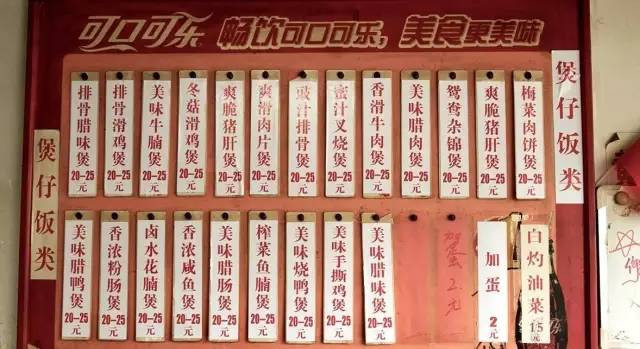 可口可乐 畅饮可口可乐,美食更美味
煲仔饭类
排骨腊味煲 20-25元
排骨滑鸡煲 20-25元
美味牛腩煲 20-25元
冬菇滑鸡煲 20-25元
爽脆猪肝煲 20-25元
爽滑肉片煲 20-25元
豉汁排骨煲 20-25元
蜜汁叉烧煲 20-25元
香滑牛肉煲 20-25元
美味腊肉煲 20-25元
鸳鸯杂锦煲 20-25元
爽脆猪肚煲 20-25元
梅菜肉饼煲 20-25元
煲仔饭类
美味腊鸭煲 20-25元
香浓粉肠煲 20-25元
卤水花腩煲 20-25元
香浓咸鱼煲 20-25元
美味腊肠煲 20-25元
榨菜鱼腩煲 20-25元
美味烧鸭煲 20-25元
美味手撕鸡煲 20-25元
美味腊味煲 20-25元
加蛋2元
加蛋 2元
白灼油菜 15元